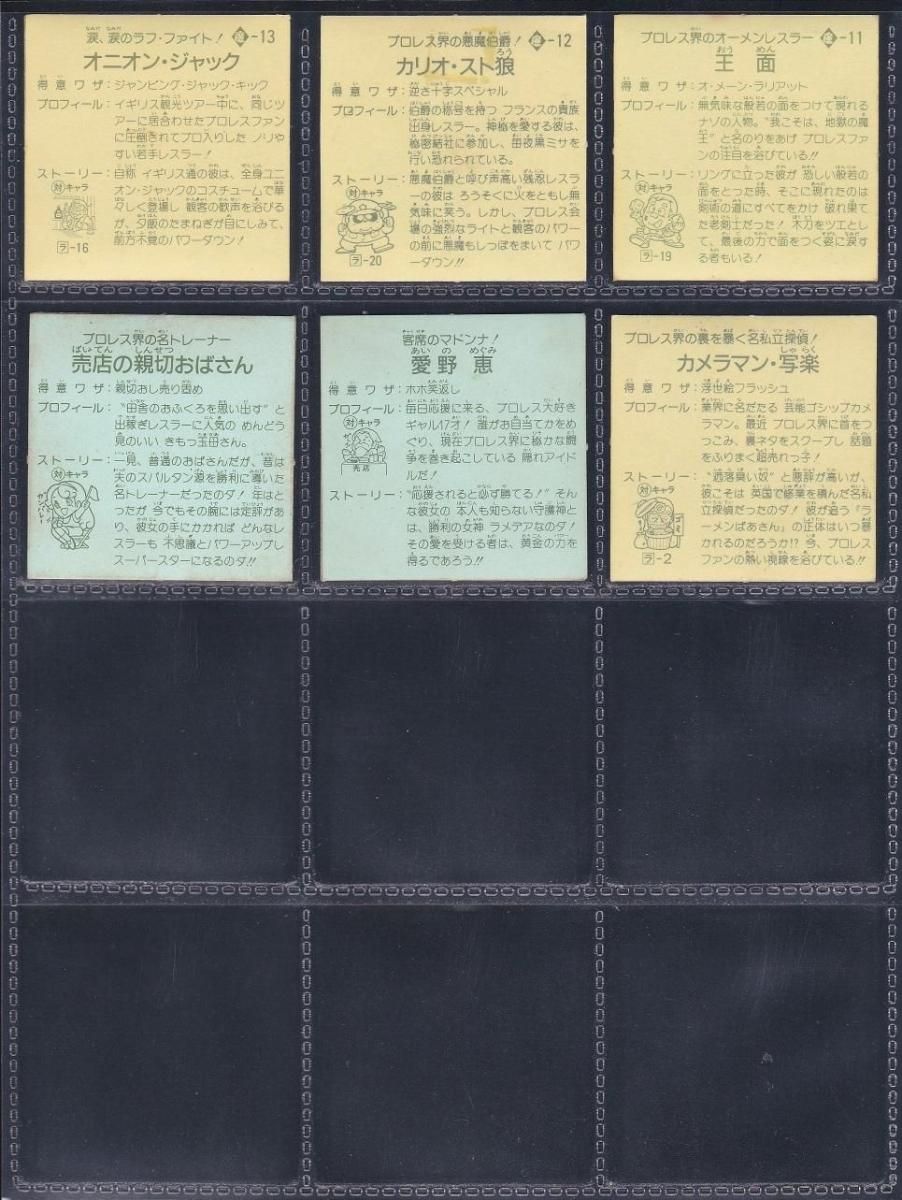 涙、涙のラフ・ファイト! -13
オニオン・ジャック
得意ワザ:ジャンピング・ジャック・キック
プロフィール:イギリス観光ツアー中に、同じツ
アーに居合わせたプロレスファン
に圧倒されてプロ入りした ノリや
すい若手レスラー!
ストーリー:自称 イギリス通の彼は、全身ユニ
オン・ジャックのコスチュームで華
々しく登場し 観客の歓声を浴びるが
、夕飯のたまねぎが目にしみて、
前方不覚のパワーダウン!
対キャラ
ラ-16
プロレス界の悪魔伯爵! -12
カリオ・スト狼
得意ワザ:逆さ十字スペシャル
プロフィール:伯爵の称号を持つ フランスの貴族
出身レスラー。神秘を愛する彼は、
秘密結社に参加し、毎夜黒ミサを
行い恐れられている。
ストーリー:悪魔伯爵と呼び声高い残忍レスラ
ーの彼は ろうそくに火をともし無
気味に笑う。しかし、プロレス会
場の強烈なライトと観客のパワー
の前に悪魔もしっぽをまいて パワ
ーダウン!!
対キャラ
ラ-20
プロレス界のオーメンレスラー -11
王面
得意ワザ:オ・メーン・ラリアット
プロフィール:無気味な般若の面をつけて現れる
ナゾの人物。"我こそは、地獄の魔
王"と名のりをあげ プロレスファ
ンの注目を浴びている!!
ストーリー:リングに立った彼が 恐しい般若の
面をとった時、そこに現れたのは
剣術の道にすべてをかけ 破れ果て
た老剣士だった! 木刀をツエとし
て、最後の力で面をつく姿に涙す
る者もいる!
対キャラ
ラ-19
プロレス界の名トレーナー
売店の親切おばさん
得意ワザ:親切おし売り固め
プロフィール:"田舎のおふくろを思い出す"と
出稼ぎレスラーに人気の めんどう
見のいい きもっ玉田さん。
ストーリー:一見、普通のおばさんだが、昔は
夫のスパルタン源を勝利に導いた
名トレーナーだったのダ! 年はと
ったが 今でもその腕には定評があ
り、彼女の手にかかれば どんなレ
スラーも 不思議とパワーアップし
スーパースターになるのダ!!
対キャラ
客席のマドンナ!
愛野 恵
得意ワザ:ホホ笑返し
プロフィール:毎日応援に来る、プロレス大好き
ギャル17才! 誰がお目当てかをめ
ぐり、現在プロレス界に秘かな闘
争を巻き起こしている 隠れアイド
ルだ!
ストーリー:"応援されると必ず勝てる!"そん
な彼女の 本人も知らない守護神と
は、勝利の女神 ラメデアなのダ!
その愛を受ける者は、黄金の力を
得るであろう!!
対キャラ
売店
プロレス界の裏を暴く名私立探偵!
カメラマン・写楽
得意ワザ:浮世絵フラッシュ
プロフィール:業界に名だたる 芸能ゴシップカメ
ラマン。最近 プロレス界に首をつ
っこみ、裏ネタをスクープし 話題
をふりまく超売れっ子!
ストーリー:"洒落臭い奴"と悪評が高いが、
彼こそは 英国で修業を積んだ名私
立探偵だったのダ! 彼が追う「ラ
ーメンばあさん」の正体はいつ暴
かれるのだろうか!? 今、プロレス
ファンの熱い視線を浴びている!!
対キャラ
ラ-2